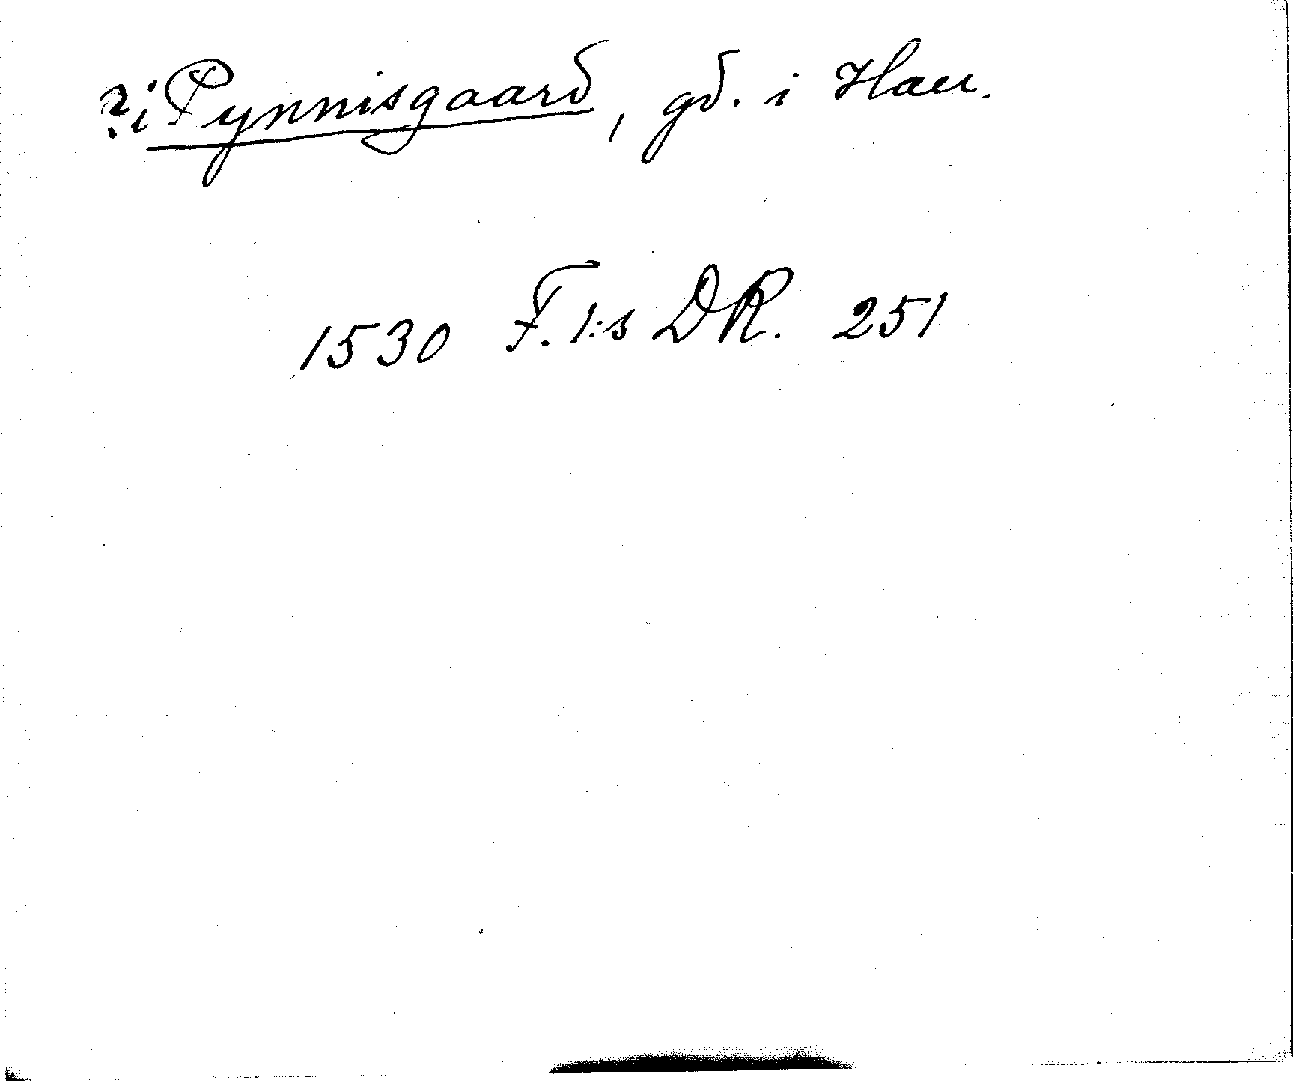 ?i Pynnisgaard, gd. i Hau.
1530 F. I:s DR. 251